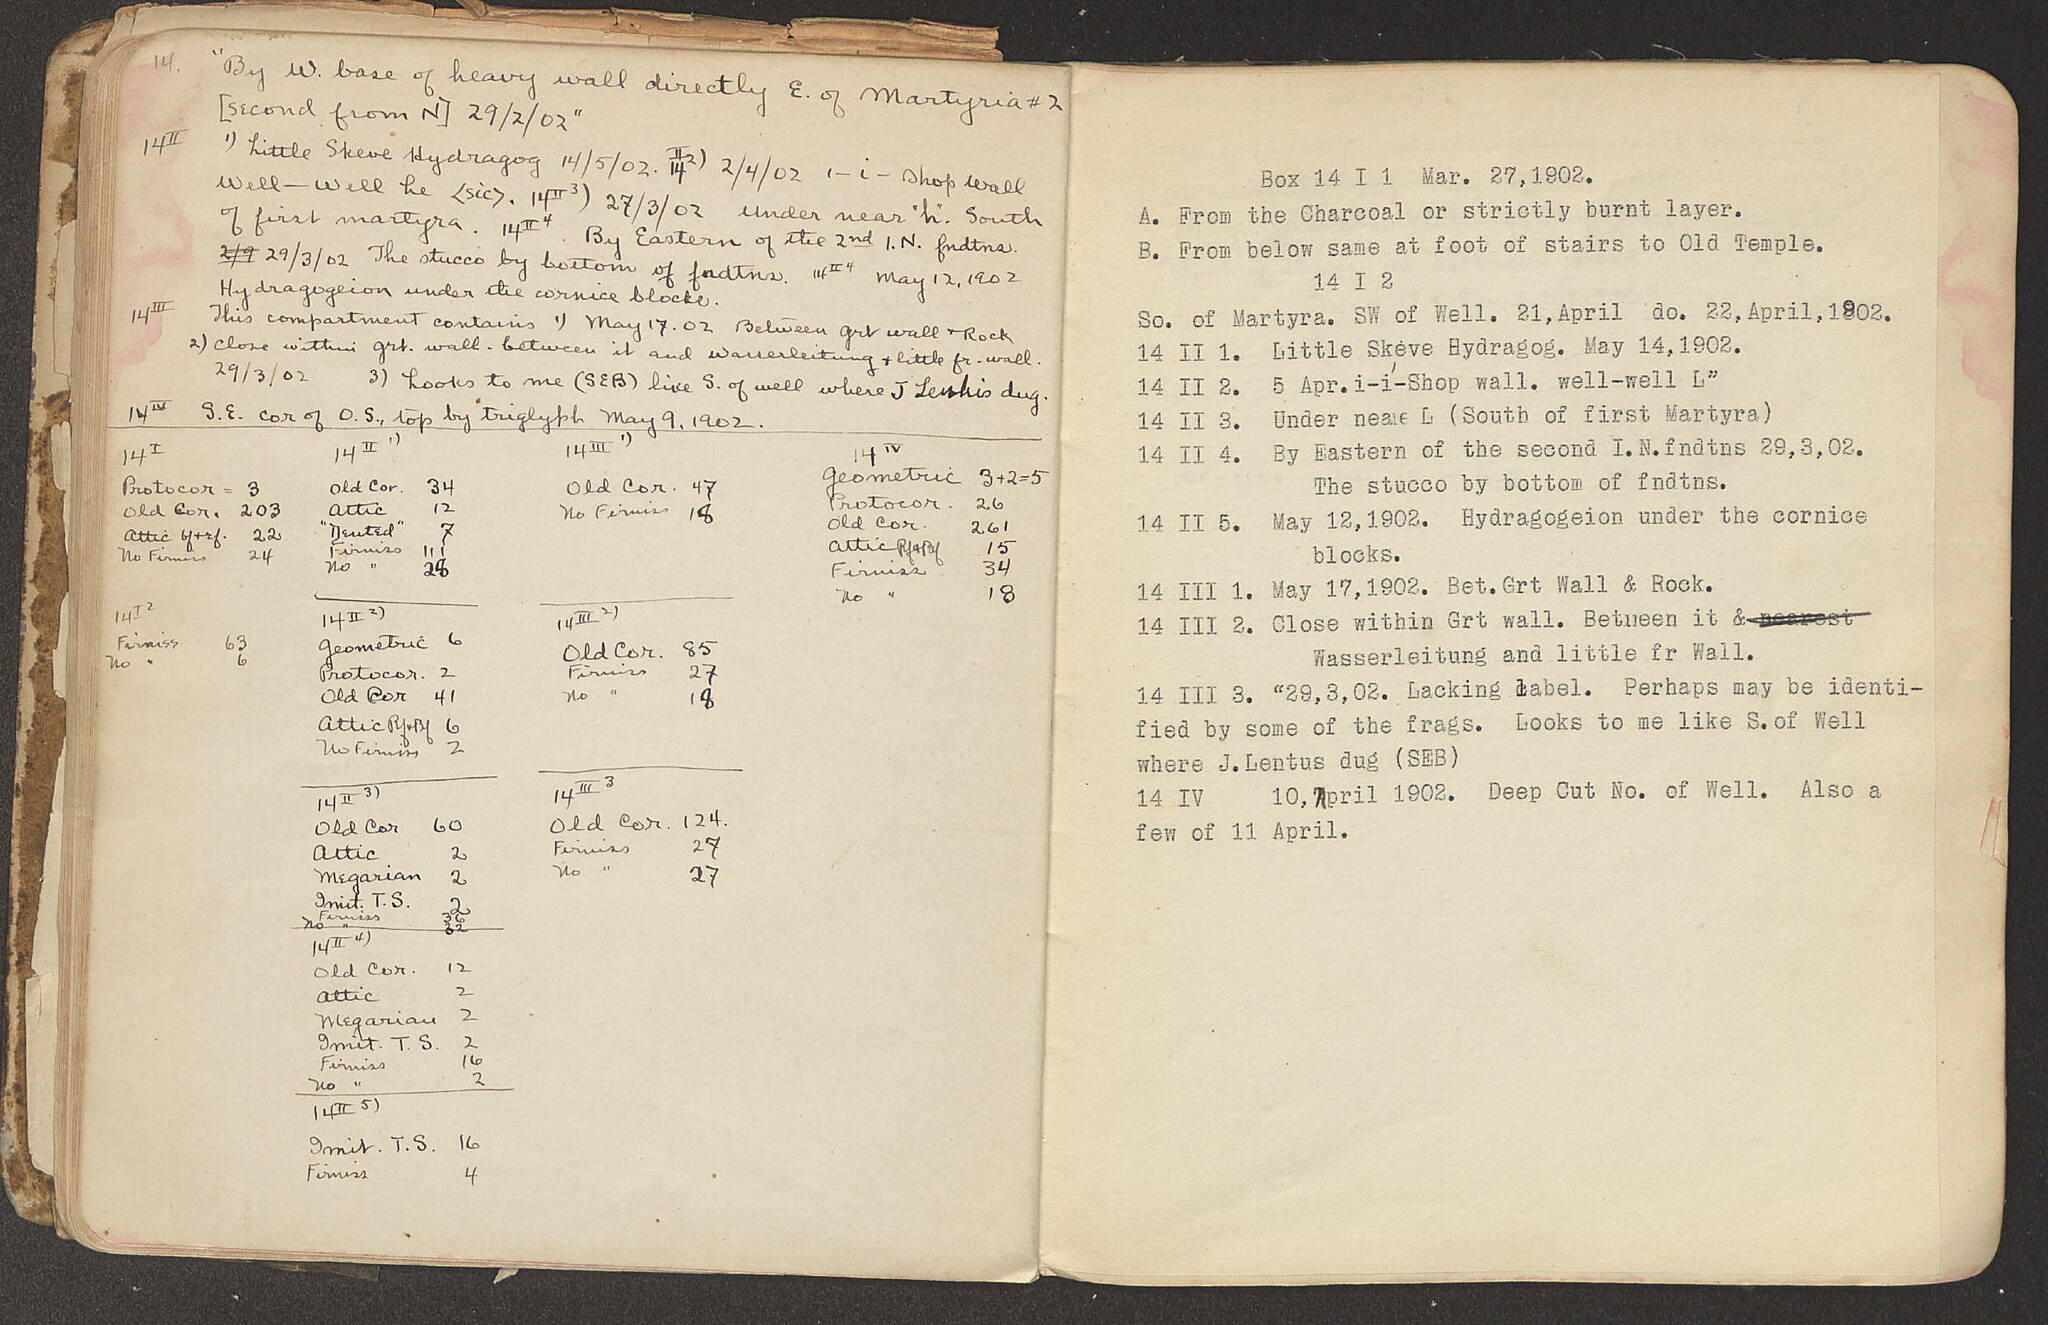 14. "By W. base of heavy wall directly E. of Martyria #2
[second from N] 29/2/02"
14II 1) Little Skeve Hydragog 14/5/02. 14II 2) 2/4/02 i-i- Shop wall
Well—Well he <sic>. 14II 3) 27/3/02 under near "h". South
of first martyra. 14II 4 By Eastern of the 2nd I.N. fndtns.
2/9 29/3/02 The stucco by bottom of fndtns. 14II 4 May 12, 1902
Hydragogeion under the cornice blocks.
14III This compartment contains 1) May 17. 02 Between grt wall + Rock
2) close within grt. wall - between it and wasserleitung + little fr. wall.
29/3/02 3) Looks to me (SEB) like S. of well where J dug.
14IV S.E. cor of O.S., top by triglyph May 9, 1902.
14I
Protocor = 3
Old Cor. 203
Attic bf+rf. 22
No Firniss 24
14I 2
Firniss 63
No " 6
14II 1)
Old Cor. 34
Attic 12
7
Firniss 111
No " 28
14II 2)
Geometric 6
Protocor. 2
Old Cor 41
Attic Rf+Bf 6
No Firniss 2
14II 3)
Old Cor 60
Attic 2
Megarian 2
Imit. T.S. 2
Firniss 36
No " 32
14II 4)
Old Cor. 12
Attic 2
Megarian 2
Imit. T.S. 2
Firniss 16
No " 2
14II 5)
Imit. T.S. 16
Firniss 4
14III 1)
Old Cor. 47
No Firniss 18
14III 2)
Old Cor. 85
Firniss 27
No " 18
14III 3
Old Cor. 124.
Firniss 27
No " 27
14IV
Geometric 3+2=5
Protocor. 26
Old Cor. 261
Attic Rf+Bf 15
Firniss 34
No " 18
Box 14 I 1 Mar. 27,1902.
A. From the Charcoal or strictly burnt layer.
B. From below same at foot of stairs to Old Temple.
14 I 2
So. of Martyra. SW of Well. 21,April do. 22,April,1902.
14 II 1. Little Skeve Hydragog. May 14,1902.
14 II 2. 5 Apr.i-i-Shop wall. well-well L"
14 II 3. Under neare L (South of first Martyra)
14 II 4. By Eastern of the second I.N.fndtns 29,3,02.
The stucco by bottom of fndtns.
14 II 5. May 12,1902. Hydragogeion under the cornice
blocks.
14 III 1. May 17,1902. Bet.Grt Wall & Rock.
14 III 2. Close within Grt wall. Between it & nearest
Wasserleitung and little fr Wall.
14 III 3. "29,3,02. Lacking label. Perhaps may be identi-
fied by some of the frags. Looks to me like S.of Well
where J.Lentus dug (SEB)
14 IV 10,April 1902. Deep Cut No. of Well. Also a
few of 11 April.